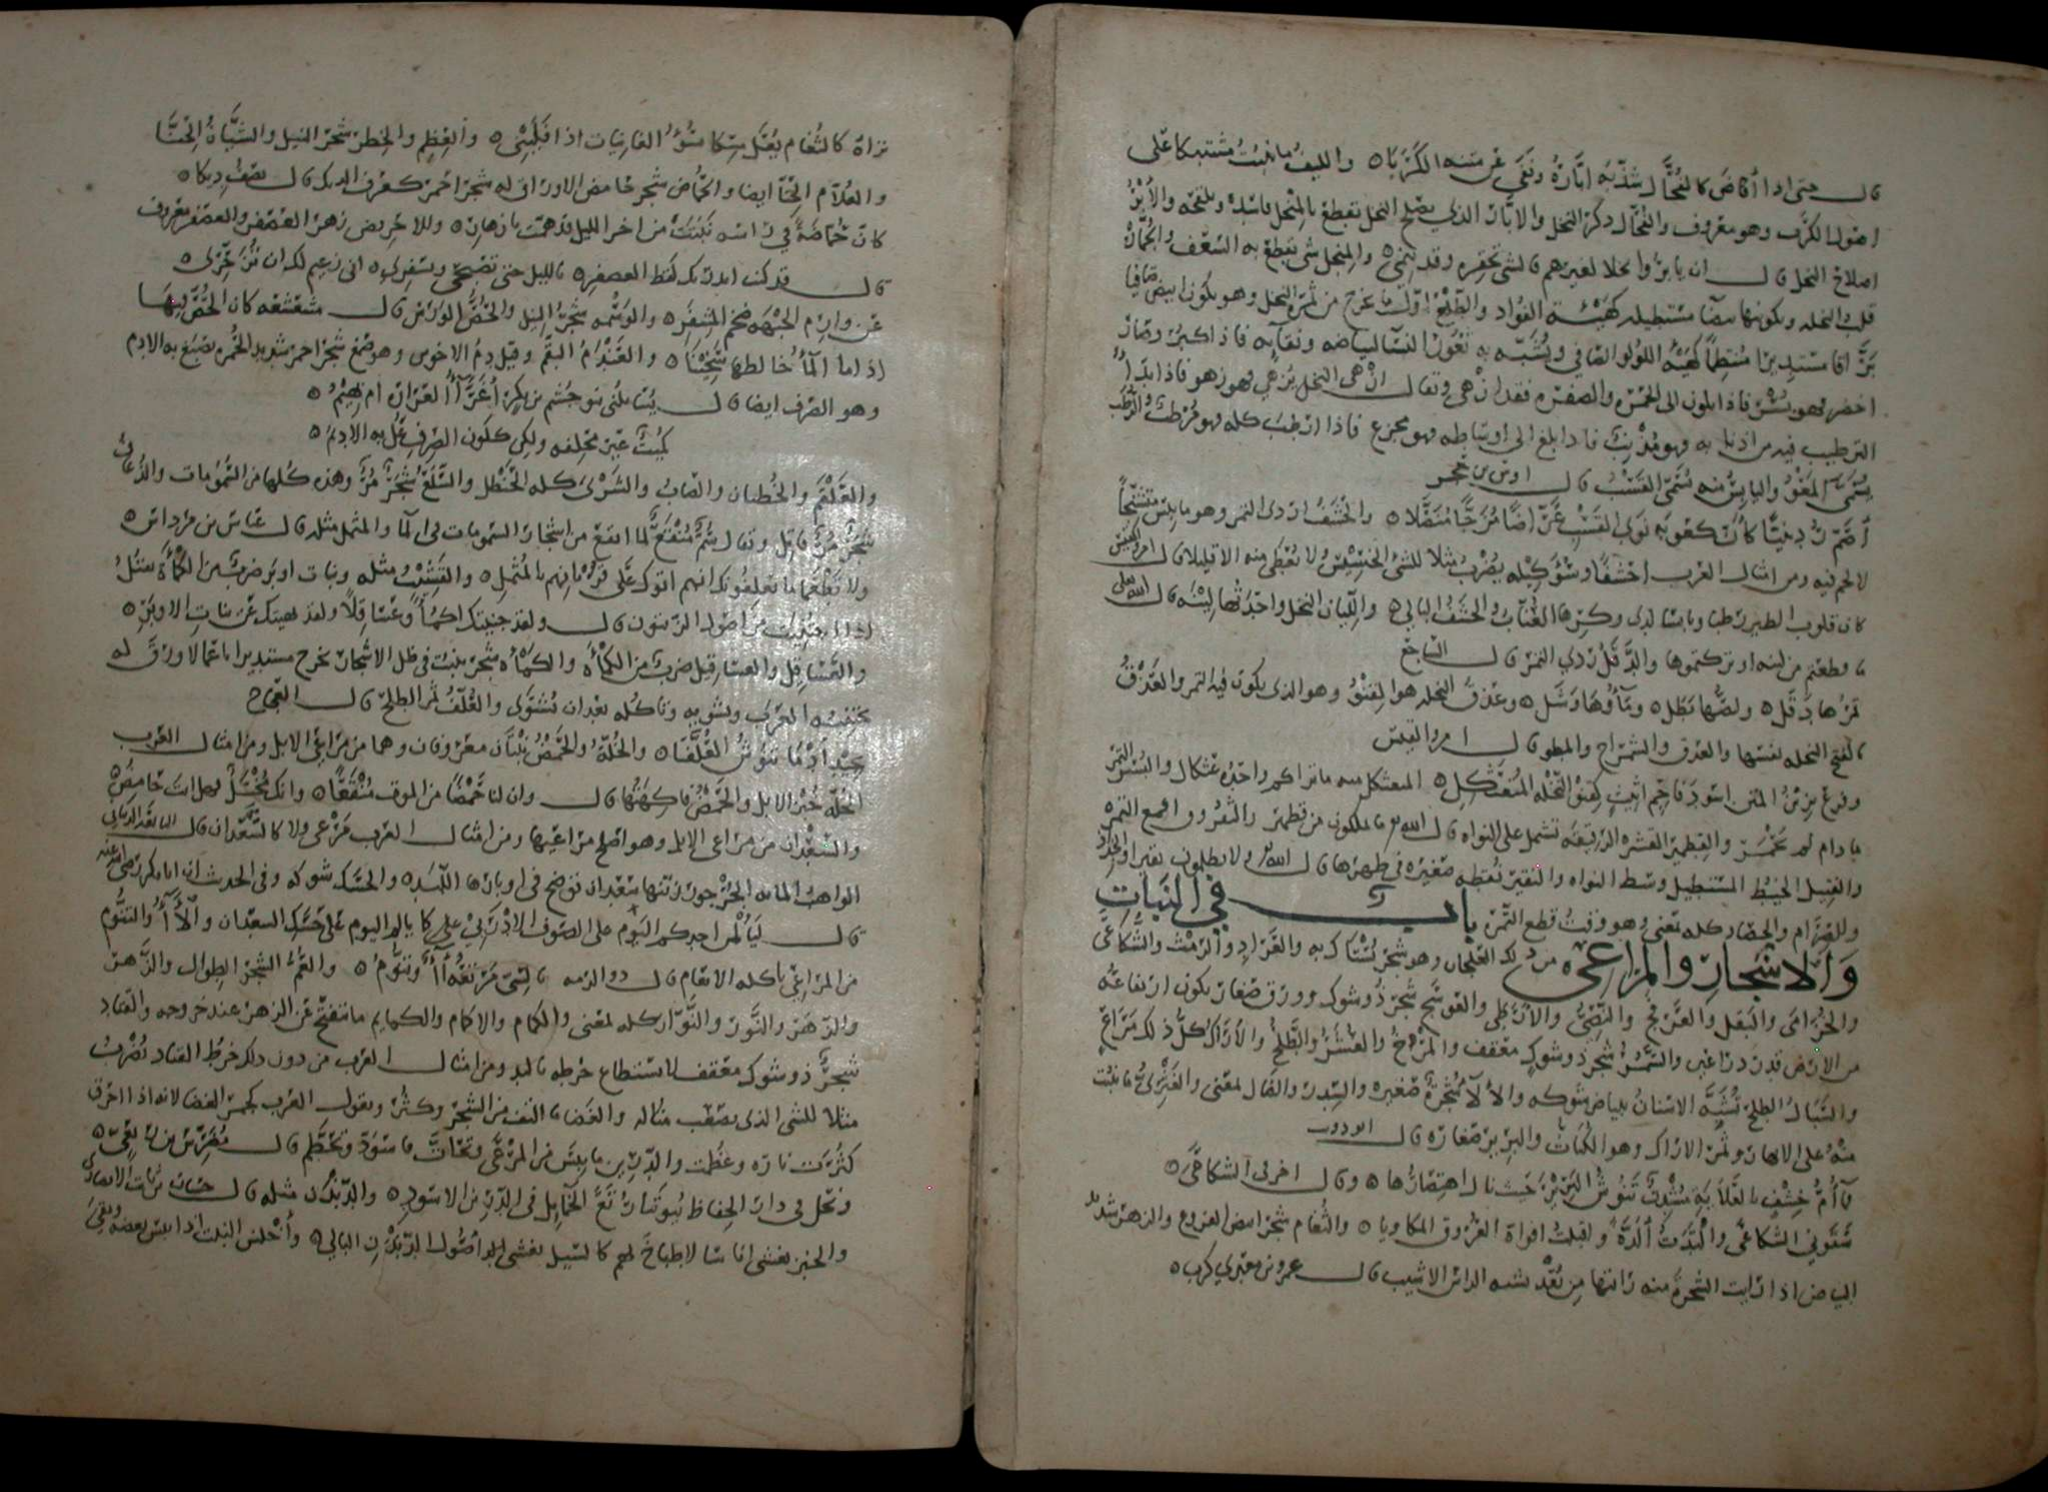 قال حتى اذا أفاض كالنخال شذبه ابّاره ونفى عن متنه الكربا ه والليف ما نبت مشتبكا على
اصول الكرب وهو معروف والنخال ذكر النخل والابّار الذي يصلح النخل يقطع بالمنجل ويلقحه والأبر
اصلاح النخل قال ان يابروا نخلا لغيرهم فالشي تحقره وقد ينمى ه والمنجل شي يقطع به السعف والجمّار
قلب النخله ويكون مستطيله كهيئة الفؤاد والطلع اول ما يخرج من ثمرة النخل وهو يكون ابيض صافيا
برّاقا مستديرا منتظما كهيئة اللؤلؤ الصافي ويشبّه به ثغور النسا لبياضه ونقائه فاذا كبر وصار
اخضر فهو بسر فاذا تلون الى الحمره والصفره فقد ازهى ويقال ازهى النخل يزهي فهو زهو فاذا بدا
الترطيب فيه من اذنابه فهو مذنب فاذا بلغ الى اوساطه فهو مجزع فاذا ارطب كله فهو مرطب والرطب
يسمى المعو واليابس منه يسمى القسب قال اوس بن حجر
أصم ردينيا كان كعوبه نوى القسب عرّاصا مزجّا منصّلا ه والحشف اردى التمر وهو ما يبس متشنجا
لا لحم فيه ومن امثال العرب احشفا وسؤ كيله يضرب مثلا للشي الخسيس لا يعطى منه الا قليلا قال امرؤ القيس
كان قلوب الطير رطبا ويابسا لدى وكرها العناب والحشف البالي ه واللّيان النخل واحدتها لينه قال الله تعلى
ما قطعتم من لينه او تركتموها والدقل ردي التمر قال الراجز
تمرها دقل ه ولصّها بطل ه وماؤها وشل ه وعذق النخله هو القنو وهو الذي يكون فيه التمر والعذق
بالفتح النخله نفسها والعذق والشمراخ والمطو قال امرؤ القيس
وفرع يزين المتن اسود فاحم اثيث كقنو النخله المتعثكل ه المتعثكل منه ما تراكم واحده عثكال والبسر التمر
ما دام لم يحمر والقطمير القشره الرقيقه تشمل على النواه قال الله ما يملكون من قطمير والثفروق اقمع التمره
والفتيل الخيط المستطيل وسط النواه والنقير نقطه صغيره في ظهرها قال الله ولا يظلمون نقيرا والجداد
والصرام والحصاد كله بمعنى وهو وقت قطع التمر باب في النبات
والاشجار والمراعي ه من ذلك العلجان وهو شجر يستاك به والعراد والرمث والشكاعى
والخزامى والنفل والعرفج والنصي والارطى والعوسج شجر ذو شوك وورق صغار يكون ارتفاعه
من الارض قدر ذراعين والسمر شجر ذو شوك معقف والمرخ والعشر والطلح والاراك كل ذلك مراع
والسّيال الطلح تشبّه الاسنان ببياض شوكه والألآ شجرة صغيره والسدر والضال بمعنى والعبري ما نبت
منه على الانهار وثمر الاراك وهو الكباث والبرير صغاره قال ابو ذويب
فما أم خشف بالعلاية شادن تنوش البرير حيث نال اهتصارها ه وقال اخر في الشكاعى ه
شربت الشكاعى والتددت ألدّة واقبلت افواه العروق المكاويا ه والثغام شجر ابيض الفروع والزهر شديد
البياض اذا رايت الشجرة منه رايتها من بعد شبه الراس الاشيب قال عمرو بن معدي كرب ه
تراه كالثغام يعلّ مسكا يسؤ الفاليات اذا فليني ه والعظلم والخطر شجر النيل والحنّا
والعلّام الحنّا ايضا والحماض شجر حامض الاوراق له شجر احمر كعرف الديك قال يصف ديكا ه
كان حمّاضة في راسه نبتت من اخر الليل قد همّت بازهار ه والاحريض زهر العصفر والعصفر معروف
قال قد كنت انذرتك لقط العصفر ه بالليل حتى تصبحي وتسفري ه اني زعيم لك ان تزحّري ه
عن وارم الجبهه ضخم المنخر ه والوسمه شجر النيل والحصّ الورس قال مشعشعه كان الحصّ فيها
اذا ما المآ خالطها سخينا ه والعندم البقّم وقيل دم الاخوين وهو صمغ شجر احمر شديد الحمره يصبغ به الادم
وهو الصرف ايضا قال يسائلني بنو جشم بن بكر أغرّآء العراده ام بهيم ه
كميت غير محلفه ولكن كلون الصرف علّ به الاديم ه
والعلقم والخطبان والصاب والشري كله الحنظل والسلع شجر مرّ وهذه كلها من السمومات والذعاف
شجر مرّ قاتل ويقال سمّ منقع لما انقع من اشجار السمومات في المآ والمثمل مثله قال عباس بن مرداس ه
ولا تطعما ما يعلفونك انهم اتوك على قرباهم بالمثمل ه والقشب مثله وبنات اوبر ضرب من الكمأة
قال ولقد جنيتك اكمؤا وعساقلا ولقد نهيتك عن بنات الاوبر ه
والعساقل والعساقيل ضرب من الكمأة والكمأه شجر ينبت في ظل الاشجار يخرج مستديرا ناعما لا ورق له
تجتنيه العرب وتشويه وتاكله بعد ان تشتوى والعلّف ثمر الطلح قال العجاج
بجيد ادما تنوش العلّفا ه والخلّة والحمض نبتان معروفان وهما من مراعي الابل ومن امثال العرب
الخلّة خبز الابل والحمض فاكهتها قال وان لنا حمضا من الموت منقعا ه وانك مختل فهل انت حامض ه
والسعدان من مراعي الابل وهو اصلح مراعيها ومن امثال العرب مرعى ولا كالسعدان قال النابغة الذبياني
الواهب المائه الجرجور زينها سعدان توضح في اوبارها اللبد ه والحسك شوكه وفي الحديث ان ابا بكر رضي الله عنه
قال ليألمن احدكم النوم على الصوف الاذربي كما يالم اليوم على حسك السعدان والأآء والتنوم
من المراعي ياكله الانعام قال ذو الرمه مرتعه أآء وتنوم ه والعمّ الشجر الطوال والزهر
والزهر والنَّور والنّوّار كله بمعنى والكمام والاكمام والكمايم ما تفتح عن الزهر عند خروجه والقتاد
شجر ذو شوك معقف لا يستطاع خرطه باليد ومن امثال العرب من دون ذلك خرط القتاد يضرب
مثلا للشي الذي يصعب مناله والغضا ما التف من الشجر وكثر ويقول العرب كجمر الغضا لانه اذا احرق
كثرت ناره وعظمت والدرين ما يبس من المرعى وتحاتّ فاسود وتحطم قال مضرس بن ربعي ه
وتحل في دار الحفاظ بيوتنا الدرين الاسود ه والدندن مثله قال حسان بن ثابت الانصاري
والخير يغشى اناسا لا طباخ لهم كالسيل يغشى اصول الدندن البالي ه وأخلس النبت اذا يبس بعضه وبقي